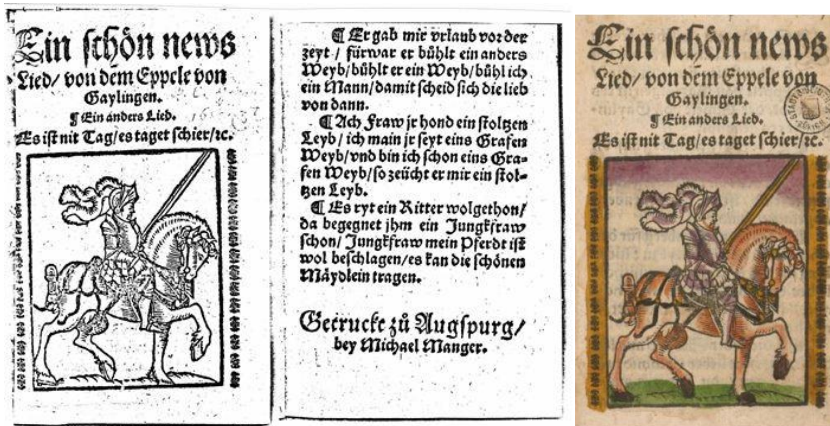 Ein schön news
Lied/ von dem Eppele von
Gaylingen.
¶ Ein anders Lied.
Es ist nit Tag/ es taget schier/ꝛc.
¶ Er gab mir vrlaub vor der
zeyt / fürwar er bühlt ein anders
Weyb/ bühlt er ein Weyb/ bühl ich
ein Mann/ damit scheid sich die lieb
von dann.
¶ Ach Fraw jr hond ein stoltzen
Leyb / ich main jr seyt eins Grafen
Weyb/ vnd bin ich schon eins Gra-
fen Weyb/ so zeücht er mir ein stol-
tzen Leyb.
¶ Es ryt ein Ritter wolgethon/
da begegnet jhm ein Jungkfraw
schon/ Jungkfraw mein Pferdt ist
wol beschlagen/ es kan die schönen
Mäydlein tragen.
Getruckt zů Augspurg/
bey Michael Manger.
Ein schön news
Lied/ von dem Eppele von
Gaylingen.
¶ Ein anders Lied.
Es ist nit Tag/ es taget schier/ꝛc.